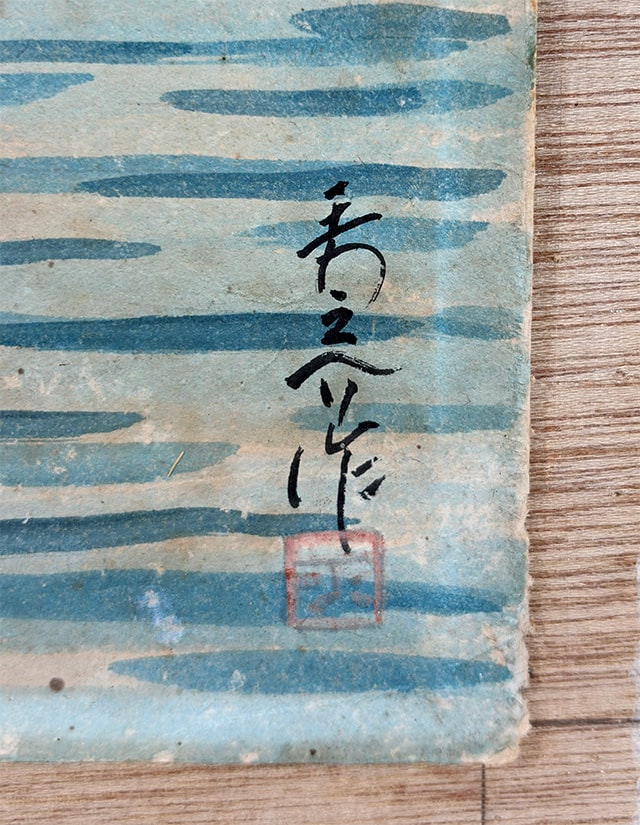 秀之介作